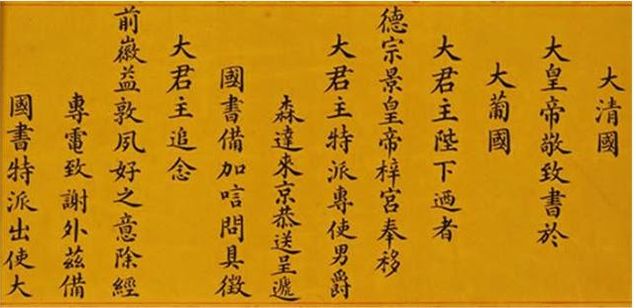 大清國
大皇帝敬致書於
大葡國
大君主陛下迺者
德宗景皇帝梓宮奉移
大君主特派專使男爵
森達來京恭送呈遞
國書備加唁問具徵
大君主追念
前徽益敦夙好之意除經
專電致謝外茲備
國書特派出使大